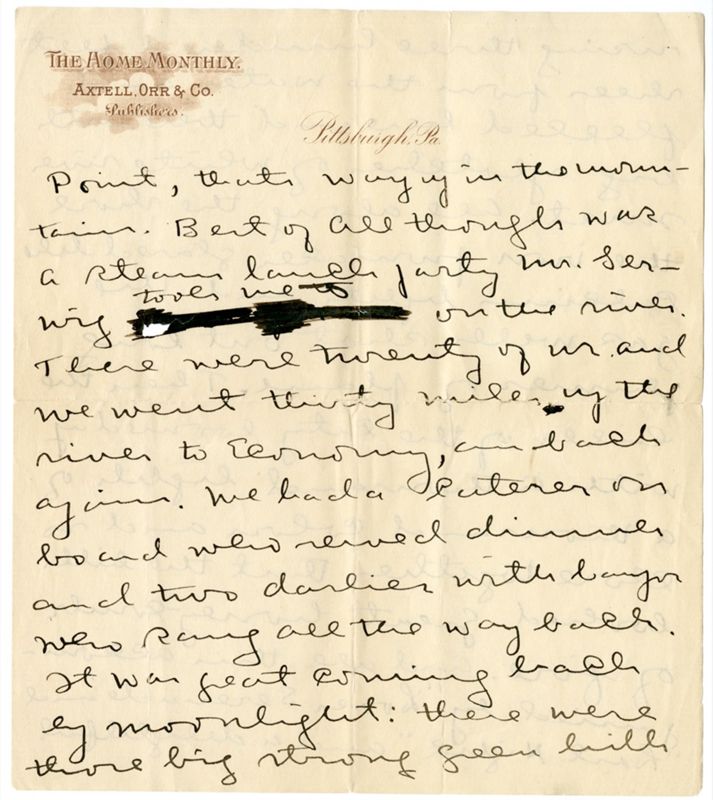 THE HOME MONTHLY.
AXTELL, ORR & CO.
Publishers.
Pittsburgh, Pa.
Point, thats way up in the moun-
tains. Best of all though was
a steam launch party Mr. Ger-
wig took me on the river.
There were twenty of us and
we went thirty miles up the
river to Economy, and back
again. We had a caterer on
board who served dinner
and two darkies with banjos
who sang all the way back.
It was great coming back
by moonlight: there were
those big strong green hills